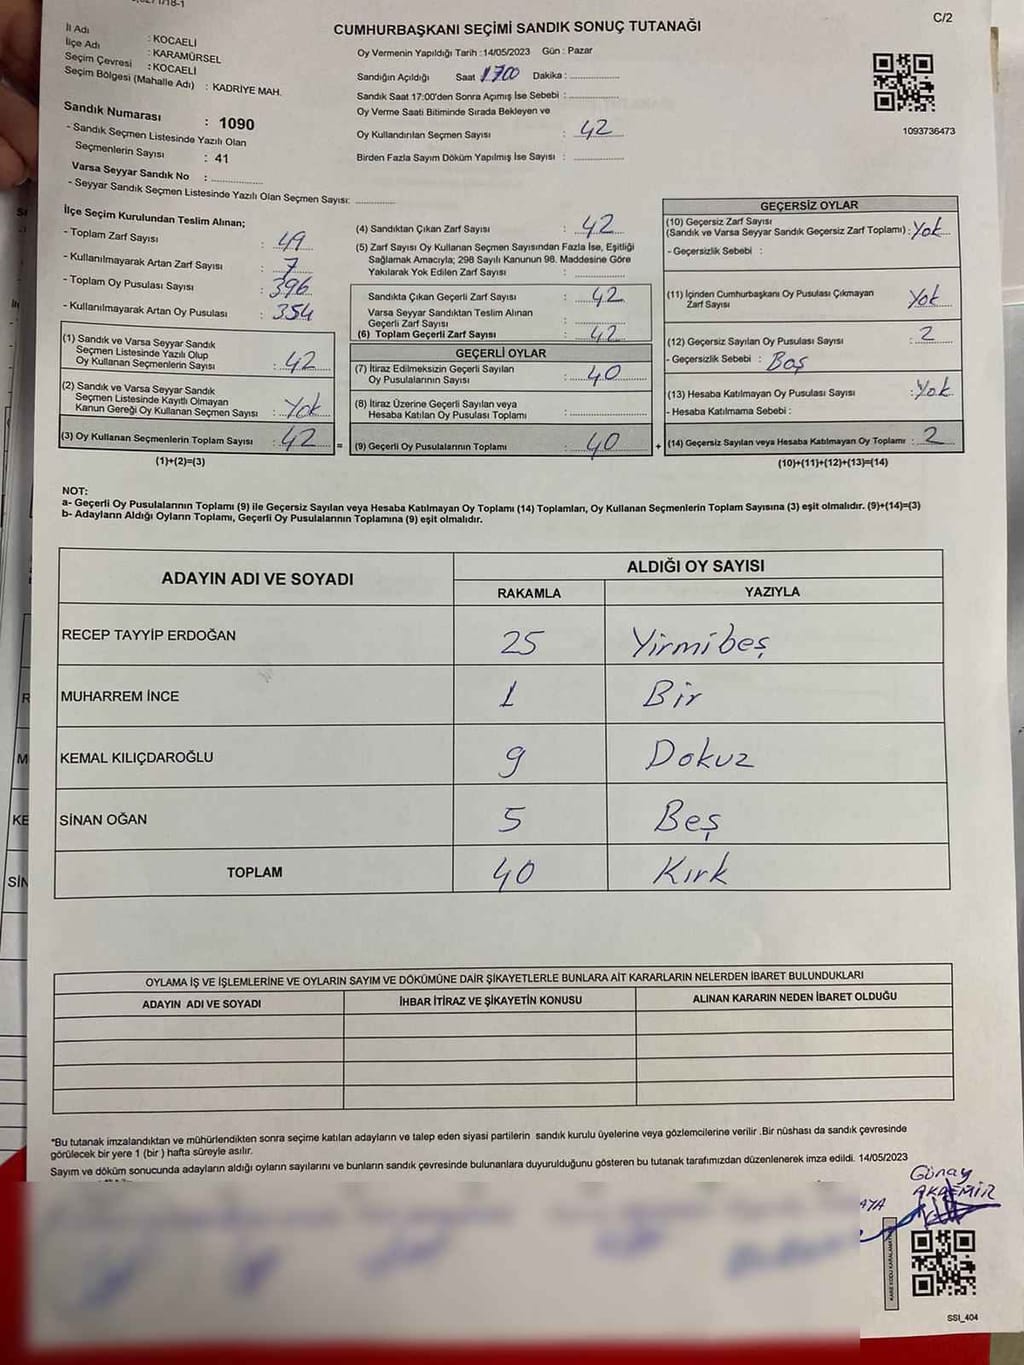 C/2
CUMHURBAŞKANI SEÇİMİ SANDIK SONUÇ TUTANAĞI
İl Adı : KOCAELİ
İlçe Adı : KARAMÜRSEL
Seçim Çevresi : KOCAELİ
Seçim Bölgesi (Mahalle Adı) : KADRİYE MAH.
Sandık Numarası : 1090
- Sandık Seçmen Listesinde Yazılı Olan
Seçmenlerin Sayısı : 41
Varsa Seyyar Sandık No :
- Seyyar Sandık Seçmen Listesinde Yazılı Olan Seçmen Sayısı:
Oy Vermenin Yapıldığı Tarih :14/05/2023 Gün : Pazar
Sandığın Açıldığı Saat 1700 Dakika :
Sandık Saat 17:00'den Sonra Açımış İse Sebebi :
Oy Verme Saati Bitiminde Sırada Bekleyen ve
Oy Kullandırılan Seçmen Sayısı : 42
Birden Fazla Sayım Döküm Yapılmış İse Sayısı :
1093736473
İlçe Seçim Kurulundan Teslim Alınan;
- Toplam Zarf Sayısı : 49
- Kullanılmayarak Artan Zarf Sayısı : 7
- Toplam Oy Pusulası Sayısı : 396
- Kullanılmayarak Artan Oy Pusulası : 354
(1) Sandık ve Varsa Seyyar Sandık
Seçmen Listesinde Yazılı Olup
Oy Kullanan Seçmenlerin Sayısı : 42
(2) Sandık ve Varsa Seyyar Sandık
Seçmen Listesinde Kayıtlı Olmayan
Kanun Gereği Oy Kullanan Seçmen Sayısı : Yok
(3) Oy Kullanan Seçmenlerin Toplam Sayısı : 42
(1)+(2)=(3)
(4) Sandıktan Çıkan Zarf Sayısı : 42
(5) Zarf Sayısı Oy Kullanan Seçmen Sayısından Fazla İse, Eşitliği
Sağlamak Amacıyla; 298 Sayılı Kanunun 98. Maddesine Göre
Yakılarak Yok Edilen Zarf Sayısı :
Sandıkta Çıkan Geçerli Zarf Sayısı : 42
Varsa Seyyar Sandıktan Teslim Alınan
Geçerli Zarf Sayısı :
(6) Toplam Geçerli Zarf Sayısı : 42
GEÇERLİ OYLAR
(7) İtiraz Edilmeksizin Geçerli Sayılan
Oy Pusulalarının Sayısı : 40
(8) İtiraz Üzerine Geçerli Sayılan veya
Hesaba Katılan Oy Pusulası Toplamı :
= (9) Geçerli Oy Pusulalarının Toplamı : 40
GEÇERSİZ OYLAR
(10) Geçersiz Zarf Sayısı
(Sandık ve Varsa Seyyar Sandık Geçersiz Zarf Toplamı) : Yok
- Geçersizlik Sebebi :
(11) İçinden Cumhurbaşkanı Oy Pusulası Çıkmayan
Zarf Sayısı Yok
(12) Geçersiz Sayılan Oy Pusulası Sayısı : 2
- Geçersizlik Sebebi : Boş
(13) Hesaba Katılmayan Oy Pusulası Sayısı : Yok
- Hesaba Katılmama Sebebi :
+ (14) Geçersiz Sayılan veya Hesaba Katılmayan Oy Toplamı : 2
(10)+(11)+(12)+(13)=(14)
NOT:
a- Geçerli Oy Pusulalarının Toplamı (9) ile Geçersiz Sayılan veya Hesaba Katılmayan Oy Toplamı (14) Toplamları, Oy Kullanan Seçmenlerin Toplam Sayısına (3) eşit olmalıdır. (9)+(14)=(3)
b- Adayların Aldığı Oyların Toplamı, Geçerli Oy Pusulalarının Toplamına (9) eşit olmalıdır.
ADAYIN ADI VE SOYADI ALDIĞI OY SAYISI
RAKAMLA YAZIYLA
RECEP TAYYİP ERDOĞAN 25 Yirmibeş
MUHARREM İNCE 1 Bir
KEMAL KILIÇDAROĞLU 9 Dokuz
SİNAN OĞAN 5 Beş
TOPLAM 40 Kırk
OYLAMA İŞ VE İŞLEMLERİNE VE OYLARIN SAYIM VE DÖKÜMÜNE DAİR ŞİKAYETLERLE BUNLARA AİT KARARLARIN NELERDEN İBARET BULUNDUKLARI
ADAYIN ADI VE SOYADI İHBAR İTİRAZ VE ŞİKAYETİN KONUSU ALINAN KARARIN NEDEN İBARET OLDUĞU
*Bu tutanak imzalandıktan ve mühürlendikten sonra seçime katılan adayların ve talep eden siyasi partilerin sandık kurulu üyelerine veya gözlemcilerine verilir .Bir nüshası da sandık çevresinde
görülecek bir yere 1 (bir ) hafta süreyle asılır.
Sayım ve döküm sonucunda adayların aldığı oyların sayılarını ve bunların sandık çevresinde bulunanlara duyurulduğunu gösteren bu tutanak tarafımızdan düzenlenerek imza edildi. 14/05/2023
Günay
AKDEMİR
SSI_404